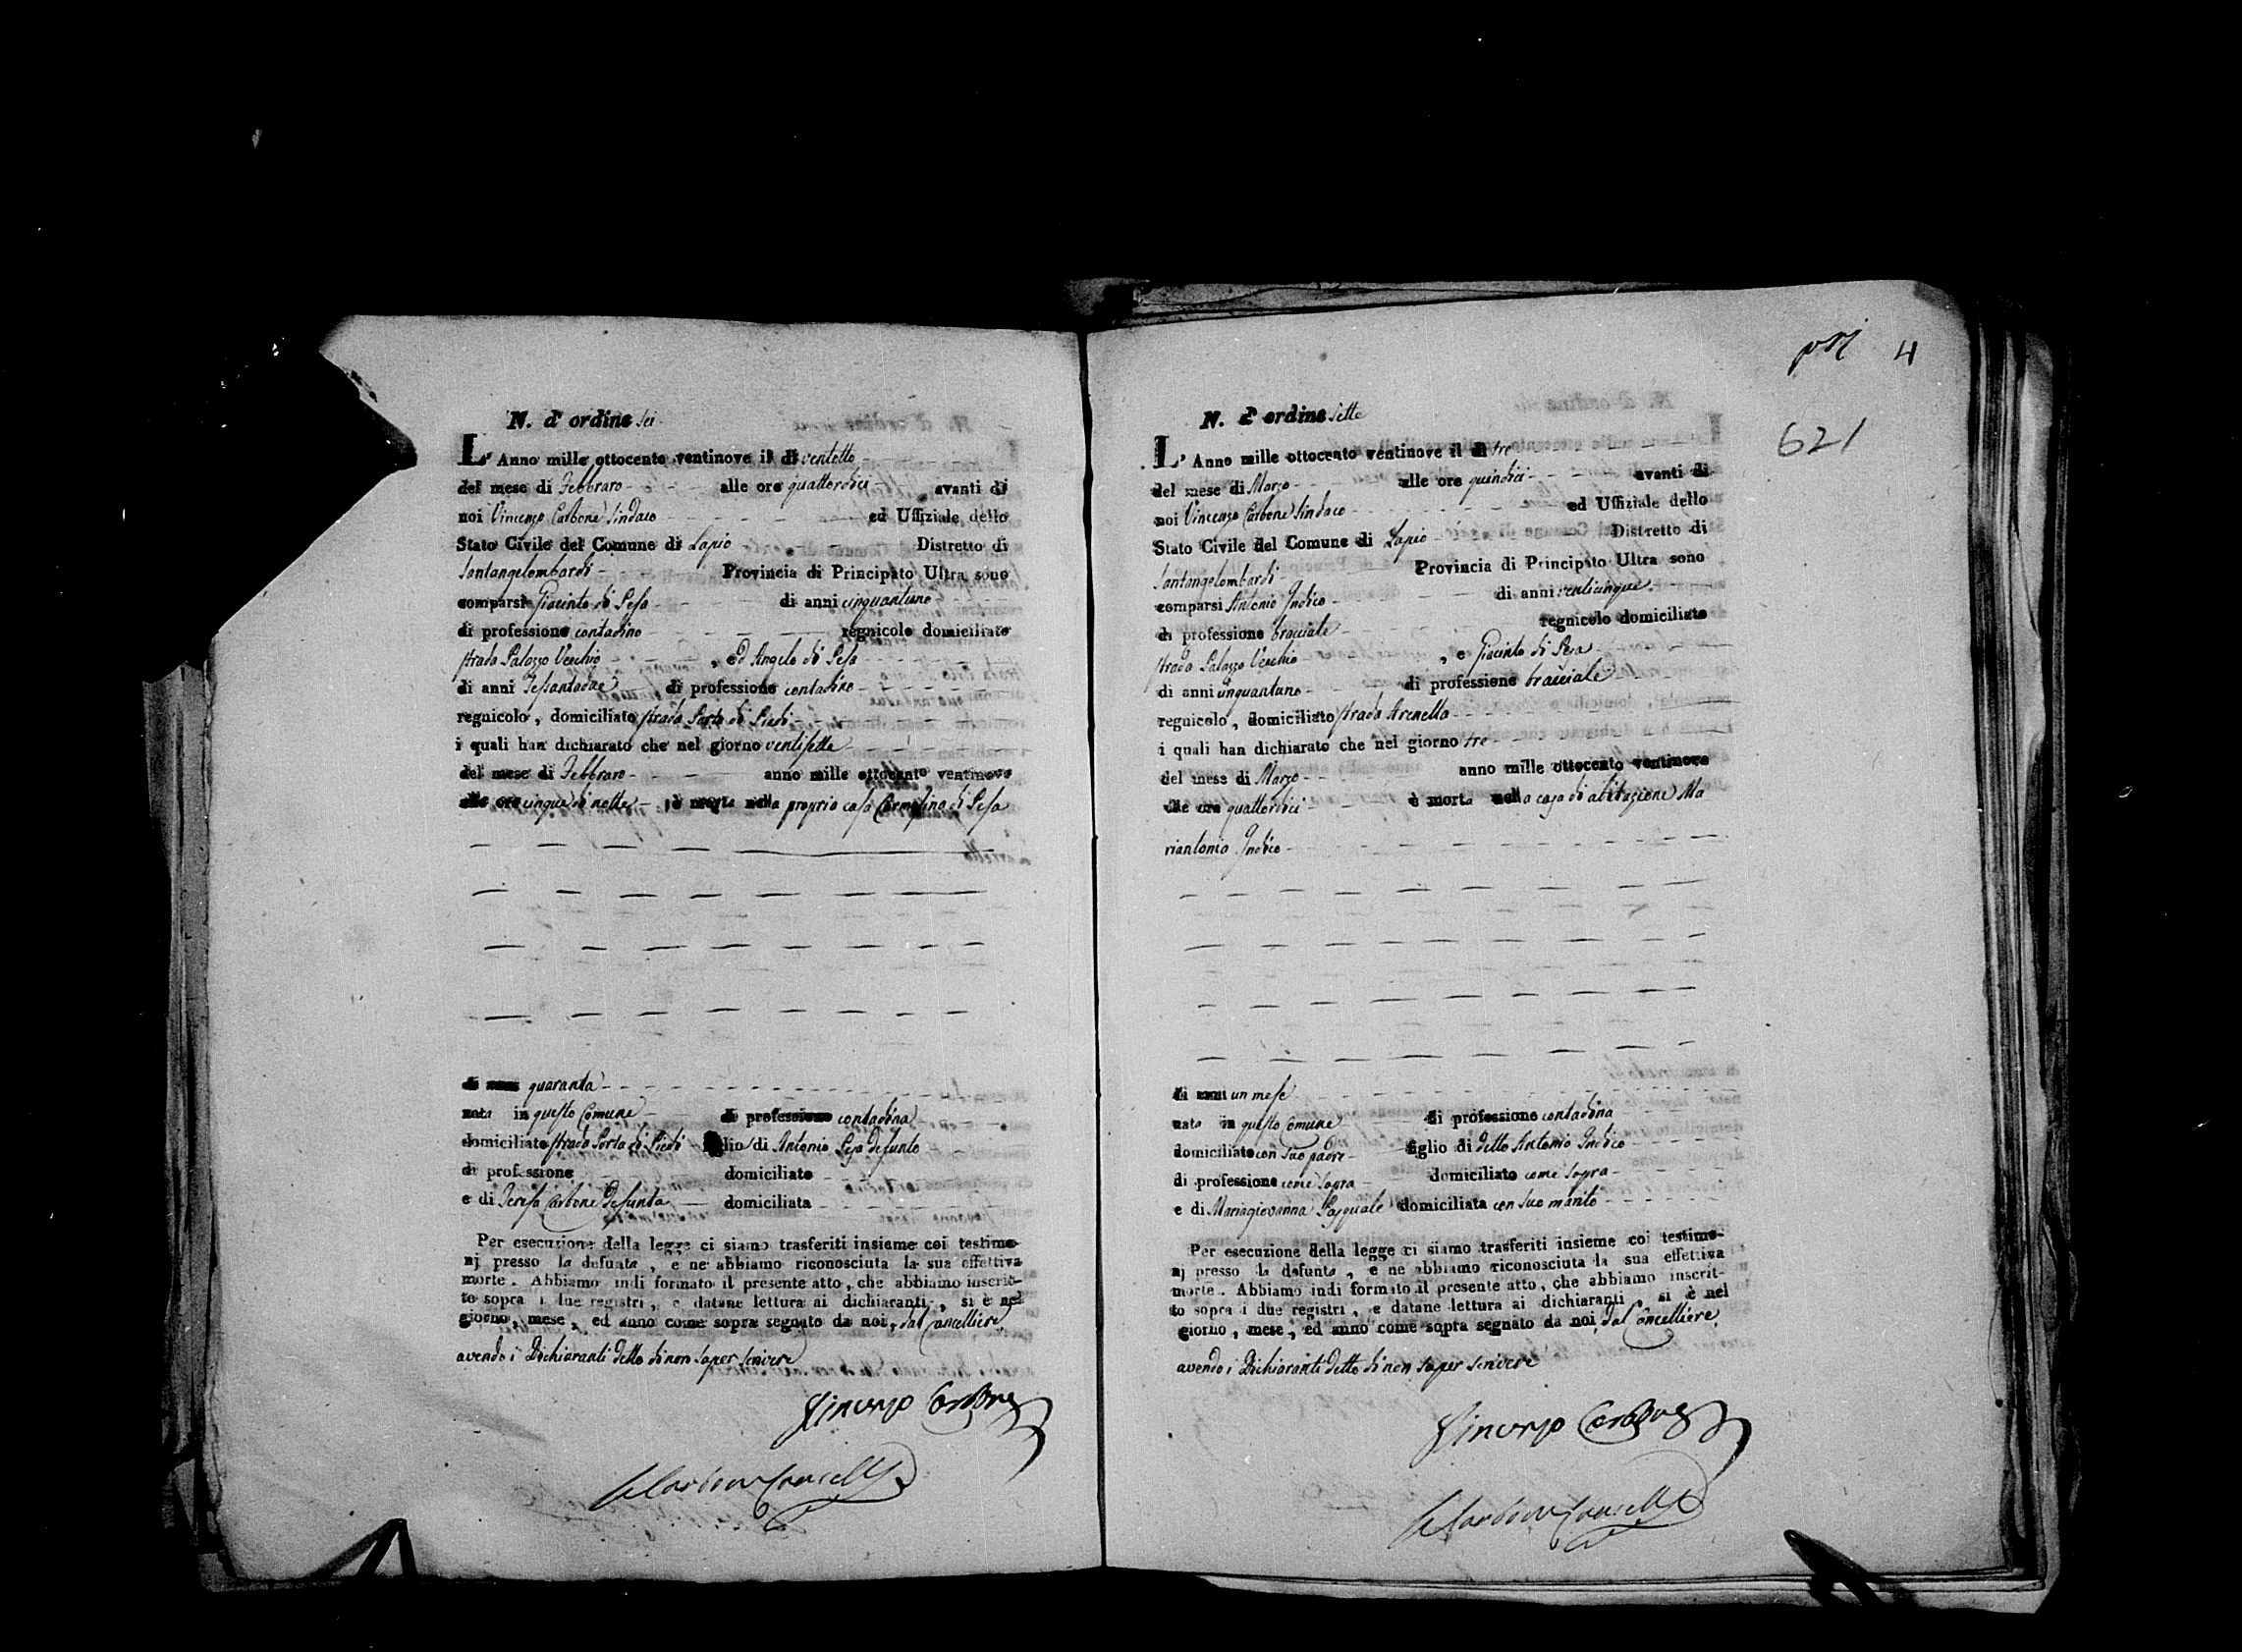 N. d'ordine sei
L'Anno mille ottocento ventinove il dì ventotto
del mese di Febbraro alle ore quattordici avanti di
noi Vincenzo Carbone Sindaco ed Uffiziale dello
Stato Civile del Comune di Lapio Distretto di
Santangelombardi Provincia di Principato Ultra sono
comparsi Giacinto di Pesa di anni cinquantuno
di professione contadino regnicolo domiciliato
strada Palazzo Vecchio , ed Angelo di Pesa
di anni Sessantadue di professione contadino
regnicolo, domiciliato strada Porta di Piedi
i quali han dichiarato che nel giorno ventisette
del mese di Febbraro anno mille ottocento ventinove
alle ore cinque di notte è morta nella propria casa Carmosina di Pesa
di anni quaranta
nata in questo Comune di professione contadina
domiciliato strada Porta di Piedi figlio di Antonio Pesa defunto
di professione domiciliato
e di Teresa Carbone defunta domiciliata
Per esecuzione della legge ci siamo trasferiti insieme coi testimo-
nj presso la defunta, e ne abbiamo riconosciuta la sua effettiva
morte. Abbiamo indi formato il presente atto, che abbiamo inscrit-
to sopra i due registri, e datane lettura ai dichiaranti, si è nel
giorno, mese, ed anno come sopra segnato da noi, dal Cancelliere
avendo i Dichiaranti detto di non saper scrivere
Vincenzo Carbone
Carbone Cancell.
pri 4
621
N. d'ordine sette
L'Anno mille ottocento ventinove il dì tre
del mese di Marzo alle ore quindici avanti di
noi Vincenzo Carbone Sindaco ed Uffiziale dello
Stato Civile del Comune di Lapio Distretto di
Santangelombardi Provincia di Principato Ultra sono
comparsi Antonio Indico di anni venticinque
di professione bracciale regnicolo domiciliato
strada Palazzo Vecchio , e Giacinto di Pesa
di anni cinquantuno di professione bracciale
regnicolo, domiciliato strada Arenella
i quali han dichiarato che nel giorno tre
del mese di Marzo anno mille ottocento ventinove
alle ore quattordici è morta nella casa di abitazione Ma
riantonia Indico
di anni un mese
nata in questo Comune di professione contadina
domiciliato con suo padre figlio di detto Antonio Indico
di professione come sopra domiciliato come sopra
e di Mariagiovanna Pasquale domiciliata con suo marito
Per esecuzione della legge ci siamo trasferiti insieme coi testimo-
nj presso la defunta, e ne abbiamo riconosciuta la sua effettiva
morte. Abbiamo indi formato il presente atto, che abbiamo inscrit-
to sopra i due registri, e datane lettura ai dichiaranti, si è nel
giorno, mese, ed anno come sopra segnato da noi, dal Cancelliere
avendo i Dichiaranti detto di non saper scrivere
Vincenzo Carbone
Carbone Cancell.